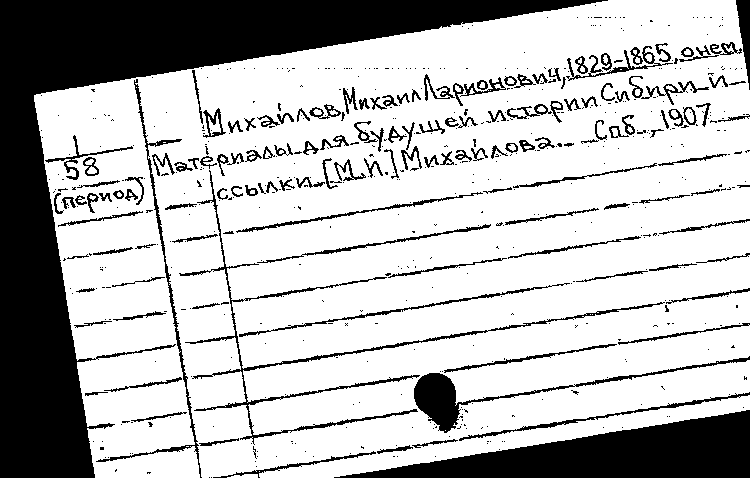 Михайлов, Михаил Ларионович, 1829-1865, о нем.
1
58
(период)
Материалы для будущей истории Сибири и
ссылки. [М. И.] Михайлова. Спб., 1907